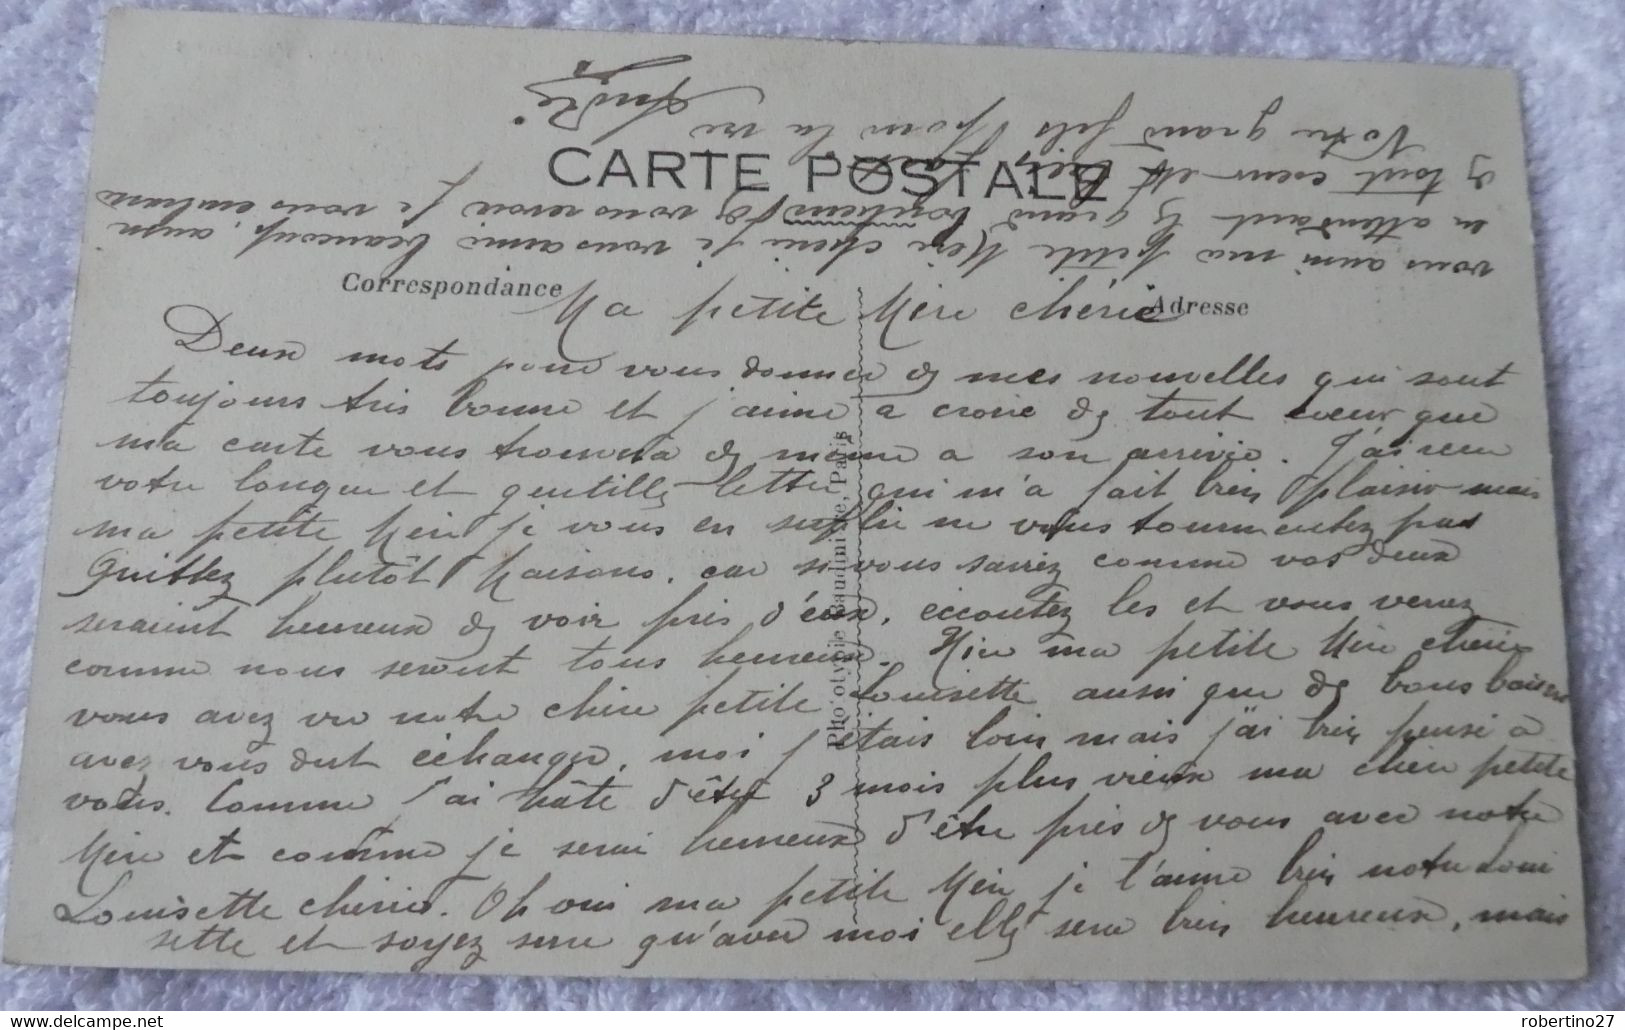 CARTE POSTALE
Correspondance
Adresse
Ma petite Mère chérie
Deux mots pour vous donner de mes nouvelles qui sont
toujours très bonne et j'aime a croire de tout coeur que
ma carte vous trouvera de même a son arrivée. J'ai reçu
votre longue et gentille lettre qui m'a fait bien plaisir mais
ma petite Mère je vous en suplie ne vous tourmentez pas
Quittez plutôt Maisons. car si vous saviez comme vos deux
seraient heureux de voir près d'eux. éccoutez les et vous verez
comme nous seront tous heureux. Hier ma petite Mère chérie
vous avez vu notre chère petite Louisette aussi que de bons baisers
avez vous dut échanger, moi j'étais loin mais j'ai bien pensé a
vous. Comme j'ai hâte d'être 3 mois plus vieux ma chère petite
Mère et comme je serai heureux d'être près de vous avec notre
Louisette chérie. Oh oui ma petite Mère je t'aime bien notre Loui
sette et soyez sure qu'avec moi elle sera bien heureux, mais
vous aussi ma petite Mère chérie je vous aime beaucoup, aussi
en attendant le grand bonheur de vous revoir je vous embrasse
de tout coeur et bien fort
Votre grand fils pour la vie
André
Phototypie Baudinière, Paris
robertino27